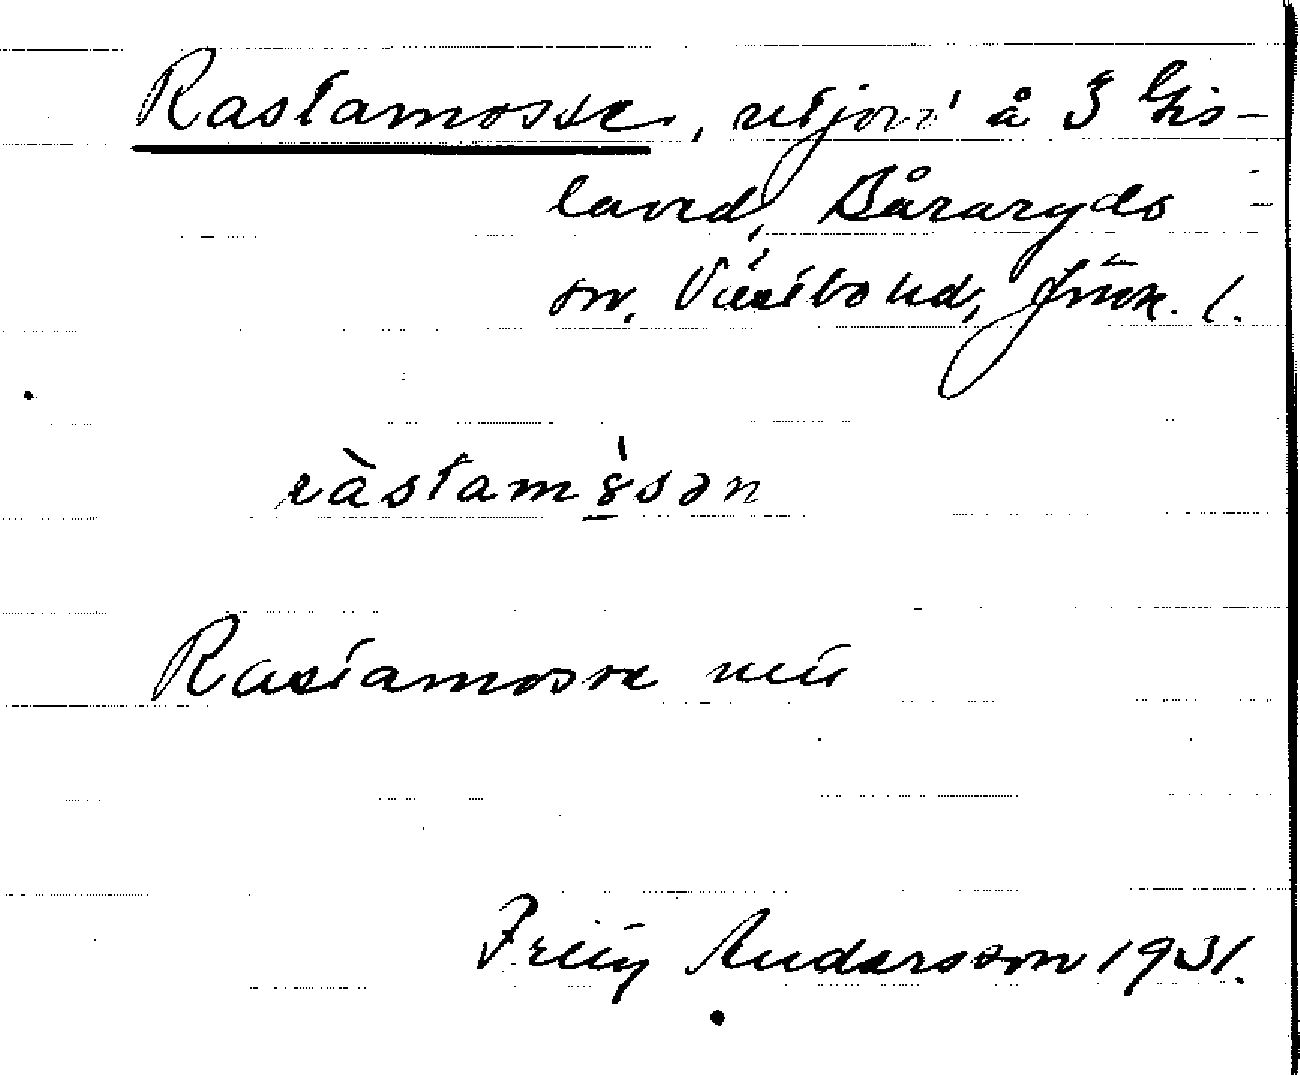 Rastamosse, utjord å 3 Gis-
laved, Båraryds
sn, Västbo hd, Jönk. l.
ràstamòsən
Rastamosse
Andersson 1931.